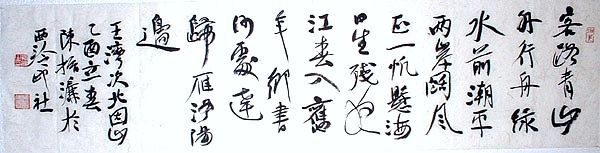 客路青山
外行舟緑
水前潮平
兩岸闊風
正一帆懸海
日生殘夜
江春入舊
年鄉書
何處達
歸雁洛陽
邊
王灣次北固山
乙酉立春
陳振濂於
西泠印社